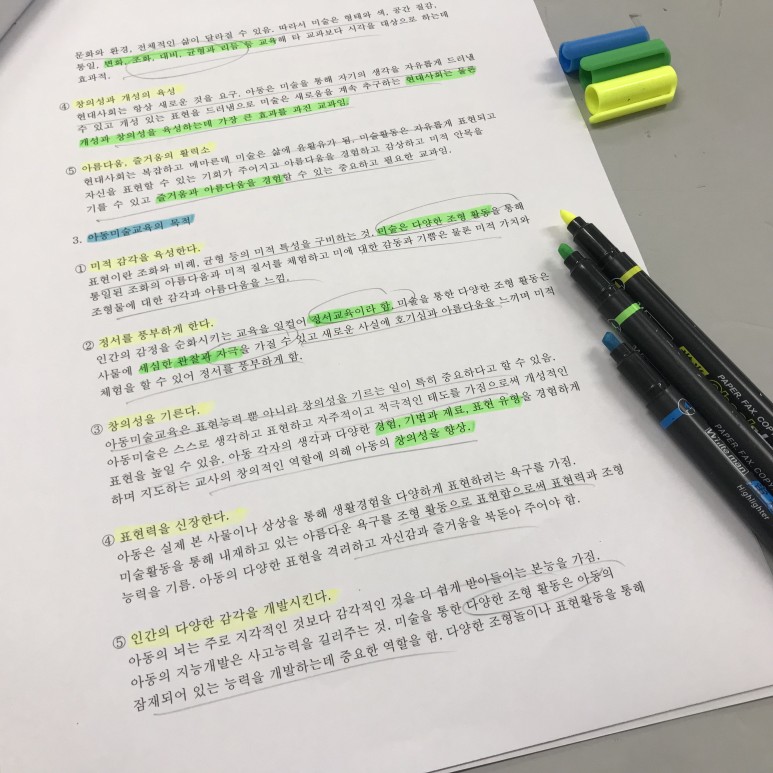 문화와 환경, 전체적인 삶이 달라질 수 있음. 따라서 미술은 형태와 색, 공간 질감,
통일, 변화, 조화, 대비, 균형과 리듬 등 교육해 타 교과보다 시각을 대상으로 하는데
효과적.
④ 창의성과 개성의 육성
현대사회는 항상 새로운 것을 요구. 아동은 미술을 통해 자기의 생각을 자유롭게 드러낼
수 있고 개성 있는 표현을 드러냄으로 미술은 새로움을 계속 추구하는 현대사회는 물론
개성과 창의성을 육성하는데 가장 큰 효과를 가진 교과임.
⑤ 아름다움, 즐거움의 활력소
현대사회는 복잡하고 메마른데 미술은 삶에 윤활유가 됨. 미술활동은 자유롭게 표현되고
자신을 표현할 수 있는 기회가 주어지고 아름다움을 경험하고 감상하고 미적 안목을
기를 수 있고 즐거움과 아름다움을 경험할 수 있는 중요하고 필요한 교과임.
3. 아동미술교육의 목적
① 미적 감각을 육성한다.
표현이란 조화와 비례, 균형 등의 미적 특성을 구비하는 것. 미술은 다양한 조형 활동을 통해
통일된 조화의 아름다움과 미적 질서를 체험하고 미에 대한 감동과 기쁨은 물론 미적 가치와
조형물에 대한 감각과 아름다움을 느낌.
② 정서를 풍부하게 한다.
인간의 감정을 순화시키는 교육을 일컬어 정서교육이라 함. 미술을 통한 다양한 조형 활동은
사물에 세심한 관찰과 자극을 가질 수 있고 새로운 사실에 호기심과 아름다움을 느끼며 미적
체험을 할 수 있어 정서를 풍부하게 함.
③ 창의성을 기른다.
아동미술교육은 표현능력 뿐 아니라 창의성을 기르는 일이 특히 중요하다고 할 수 있음.
아동미술은 스스로 생각하고 표현하고 자주적이고 적극적인 태도를 가짐으로써 개성적인
표현을 높일 수 있음. 아동 각자의 생각과 다양한 경험, 기법과 재료, 표현 유형을 경험하게
하며 지도하는 교사의 창의적인 역할에 의해 아동의 창의성을 향상.
④ 표현력을 신장한다.
아동은 실제 본 사물이나 상상을 통해 생활경험을 다양하게 표현하려는 욕구를 가짐.
미술활동을 통해 내재하고 있는 아름다운 욕구를 조형 활동으로 표현함으로써 표현력과 조형
능력을 기름. 아동의 다양한 표현을 격려하고 자신감과 즐거움을 북돋아 주어야 함.
⑤ 인간의 다양한 감각을 개발시킨다.
아동의 뇌는 주로 지각적인 것보다 감각적인 것을 더 쉽게 받아들이는 본능을 가짐.
아동의 지능개발은 사고능력을 길러주는 것. 미술을 통한 다양한 조형 활동은 아동의
잠재되어 있는 능력을 개발하는데 중요한 역할을 함. 다양한 조형놀이나 표현활동을 통해
PAPER, FAX, COPY
PAPER, FAX, COPY
White man
Highlighter